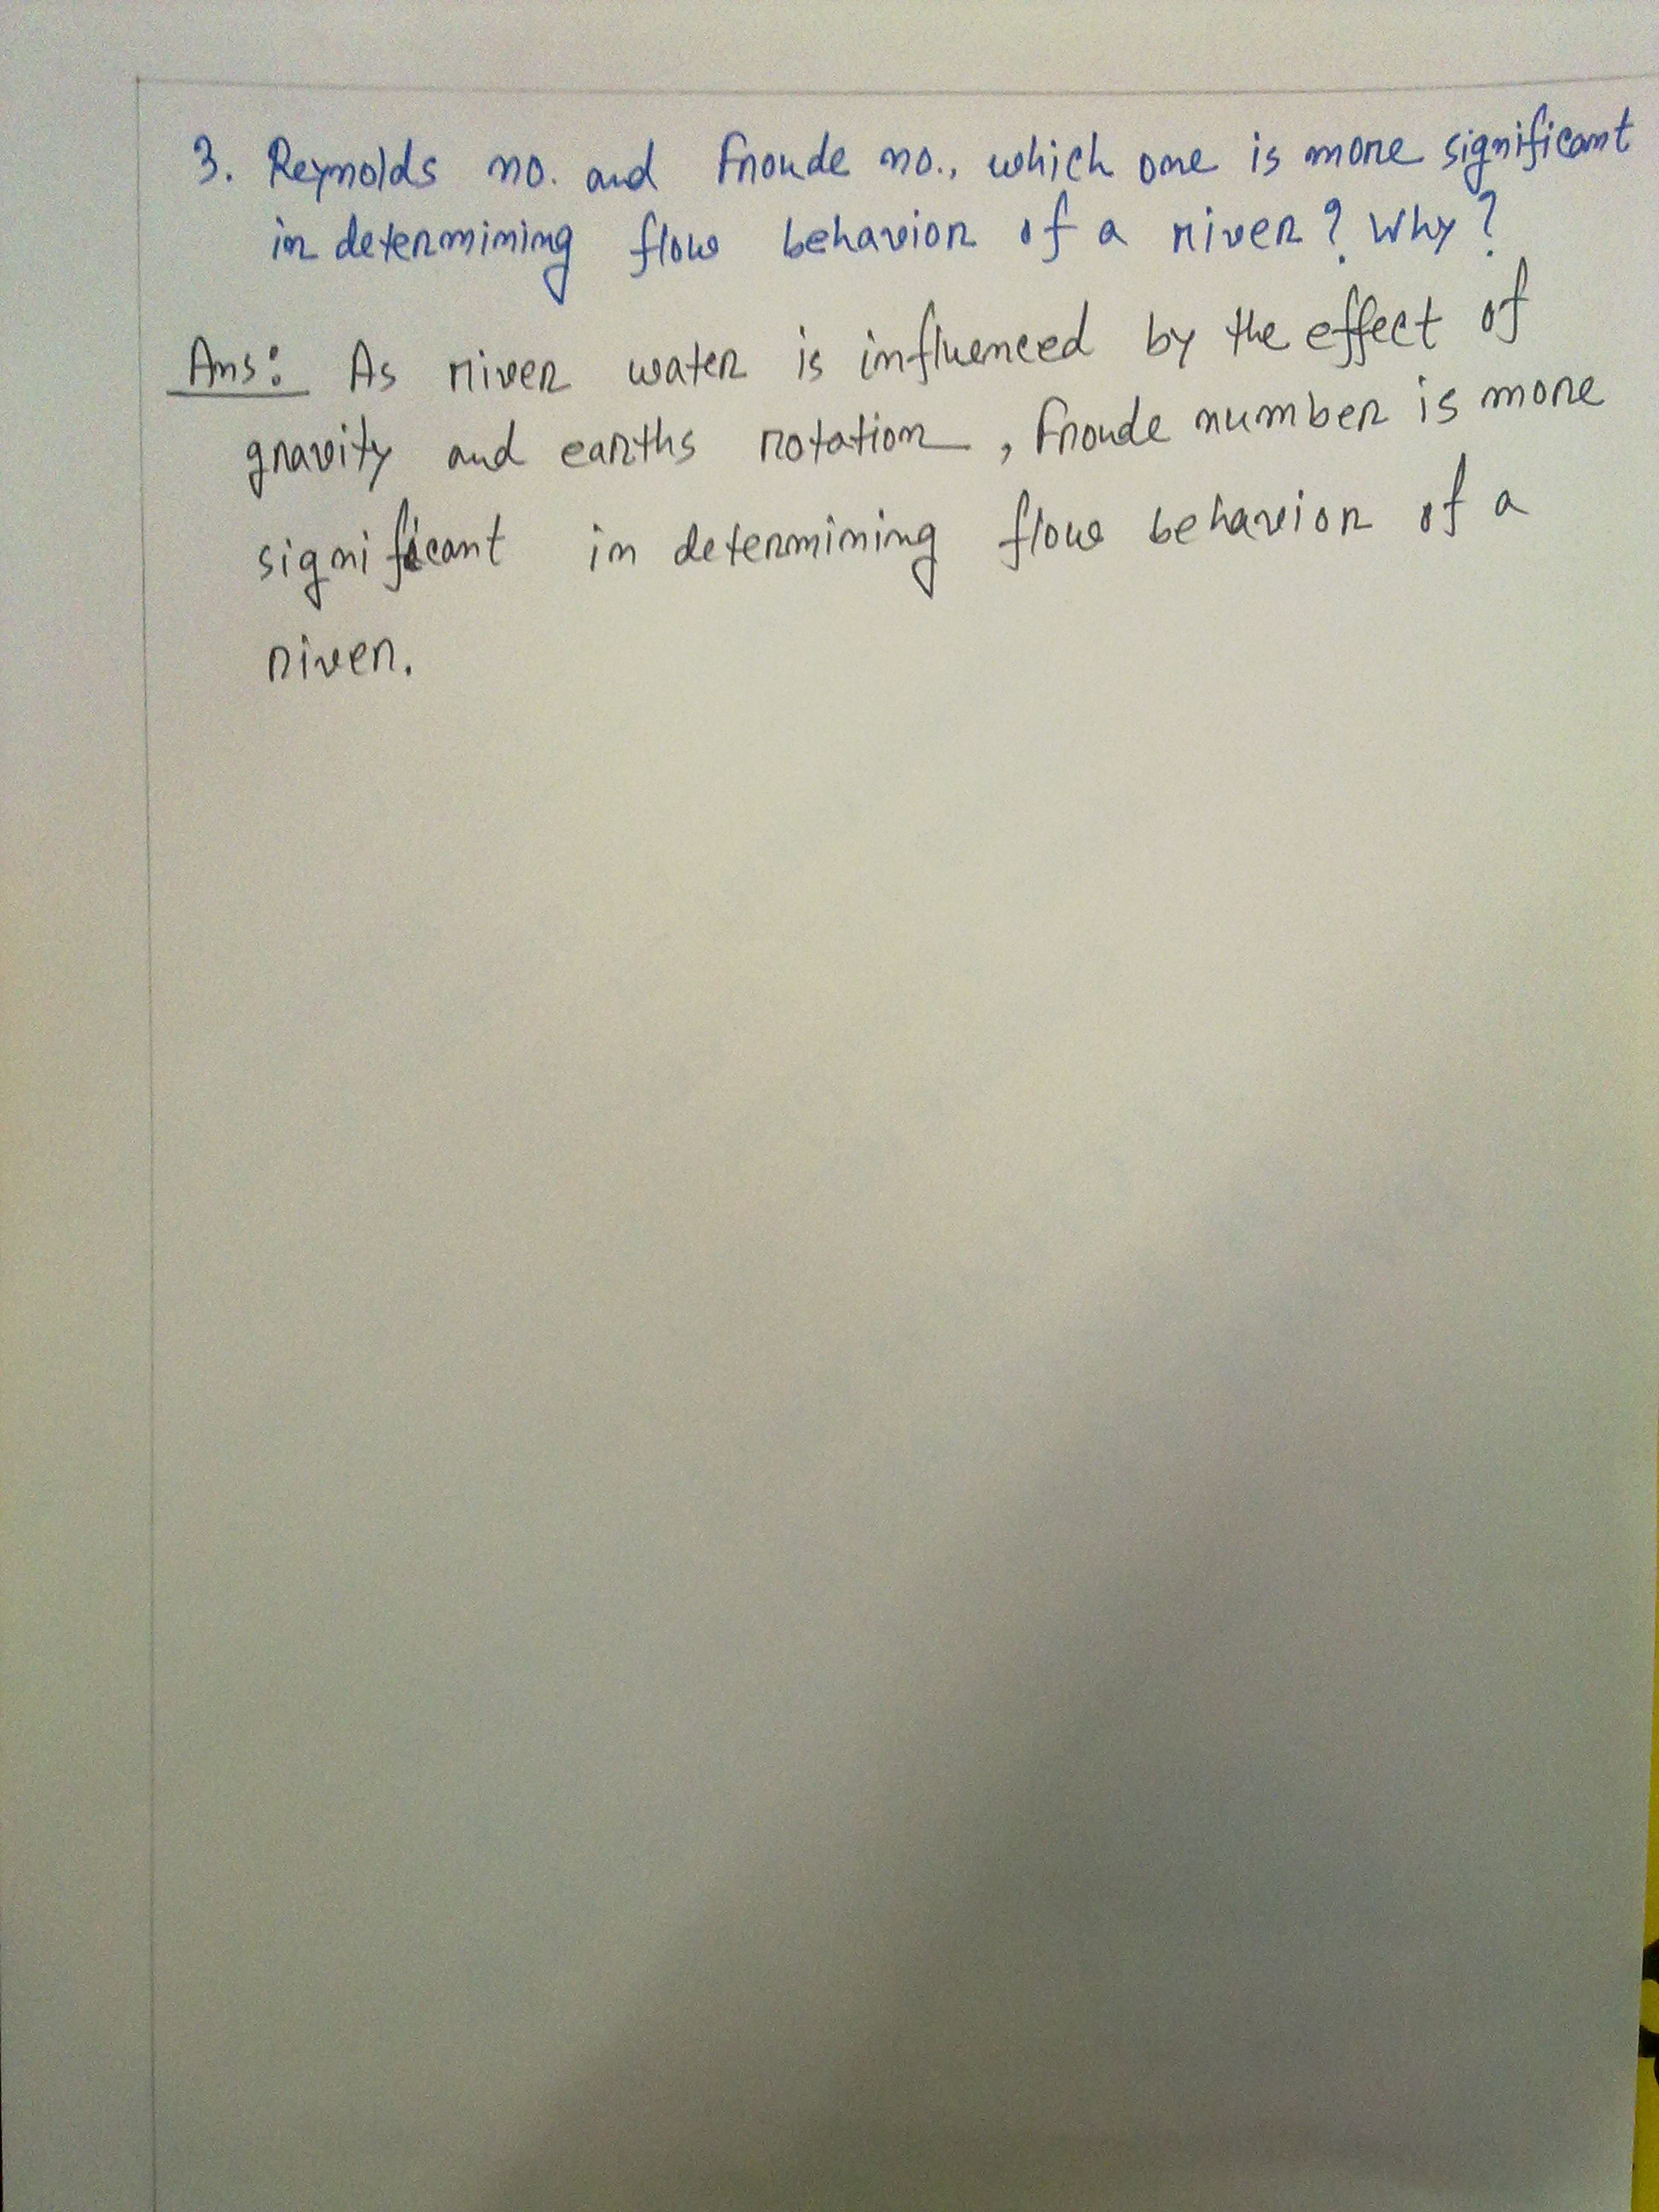 3. Reynolds no. and Froude no., which one is more significant
in determining flow behavior of a river? Why?
Ans: As river water is influenced by the effect of
gravity and earths rotation, Froude number is more
significant in determining flow behavior of a
river.